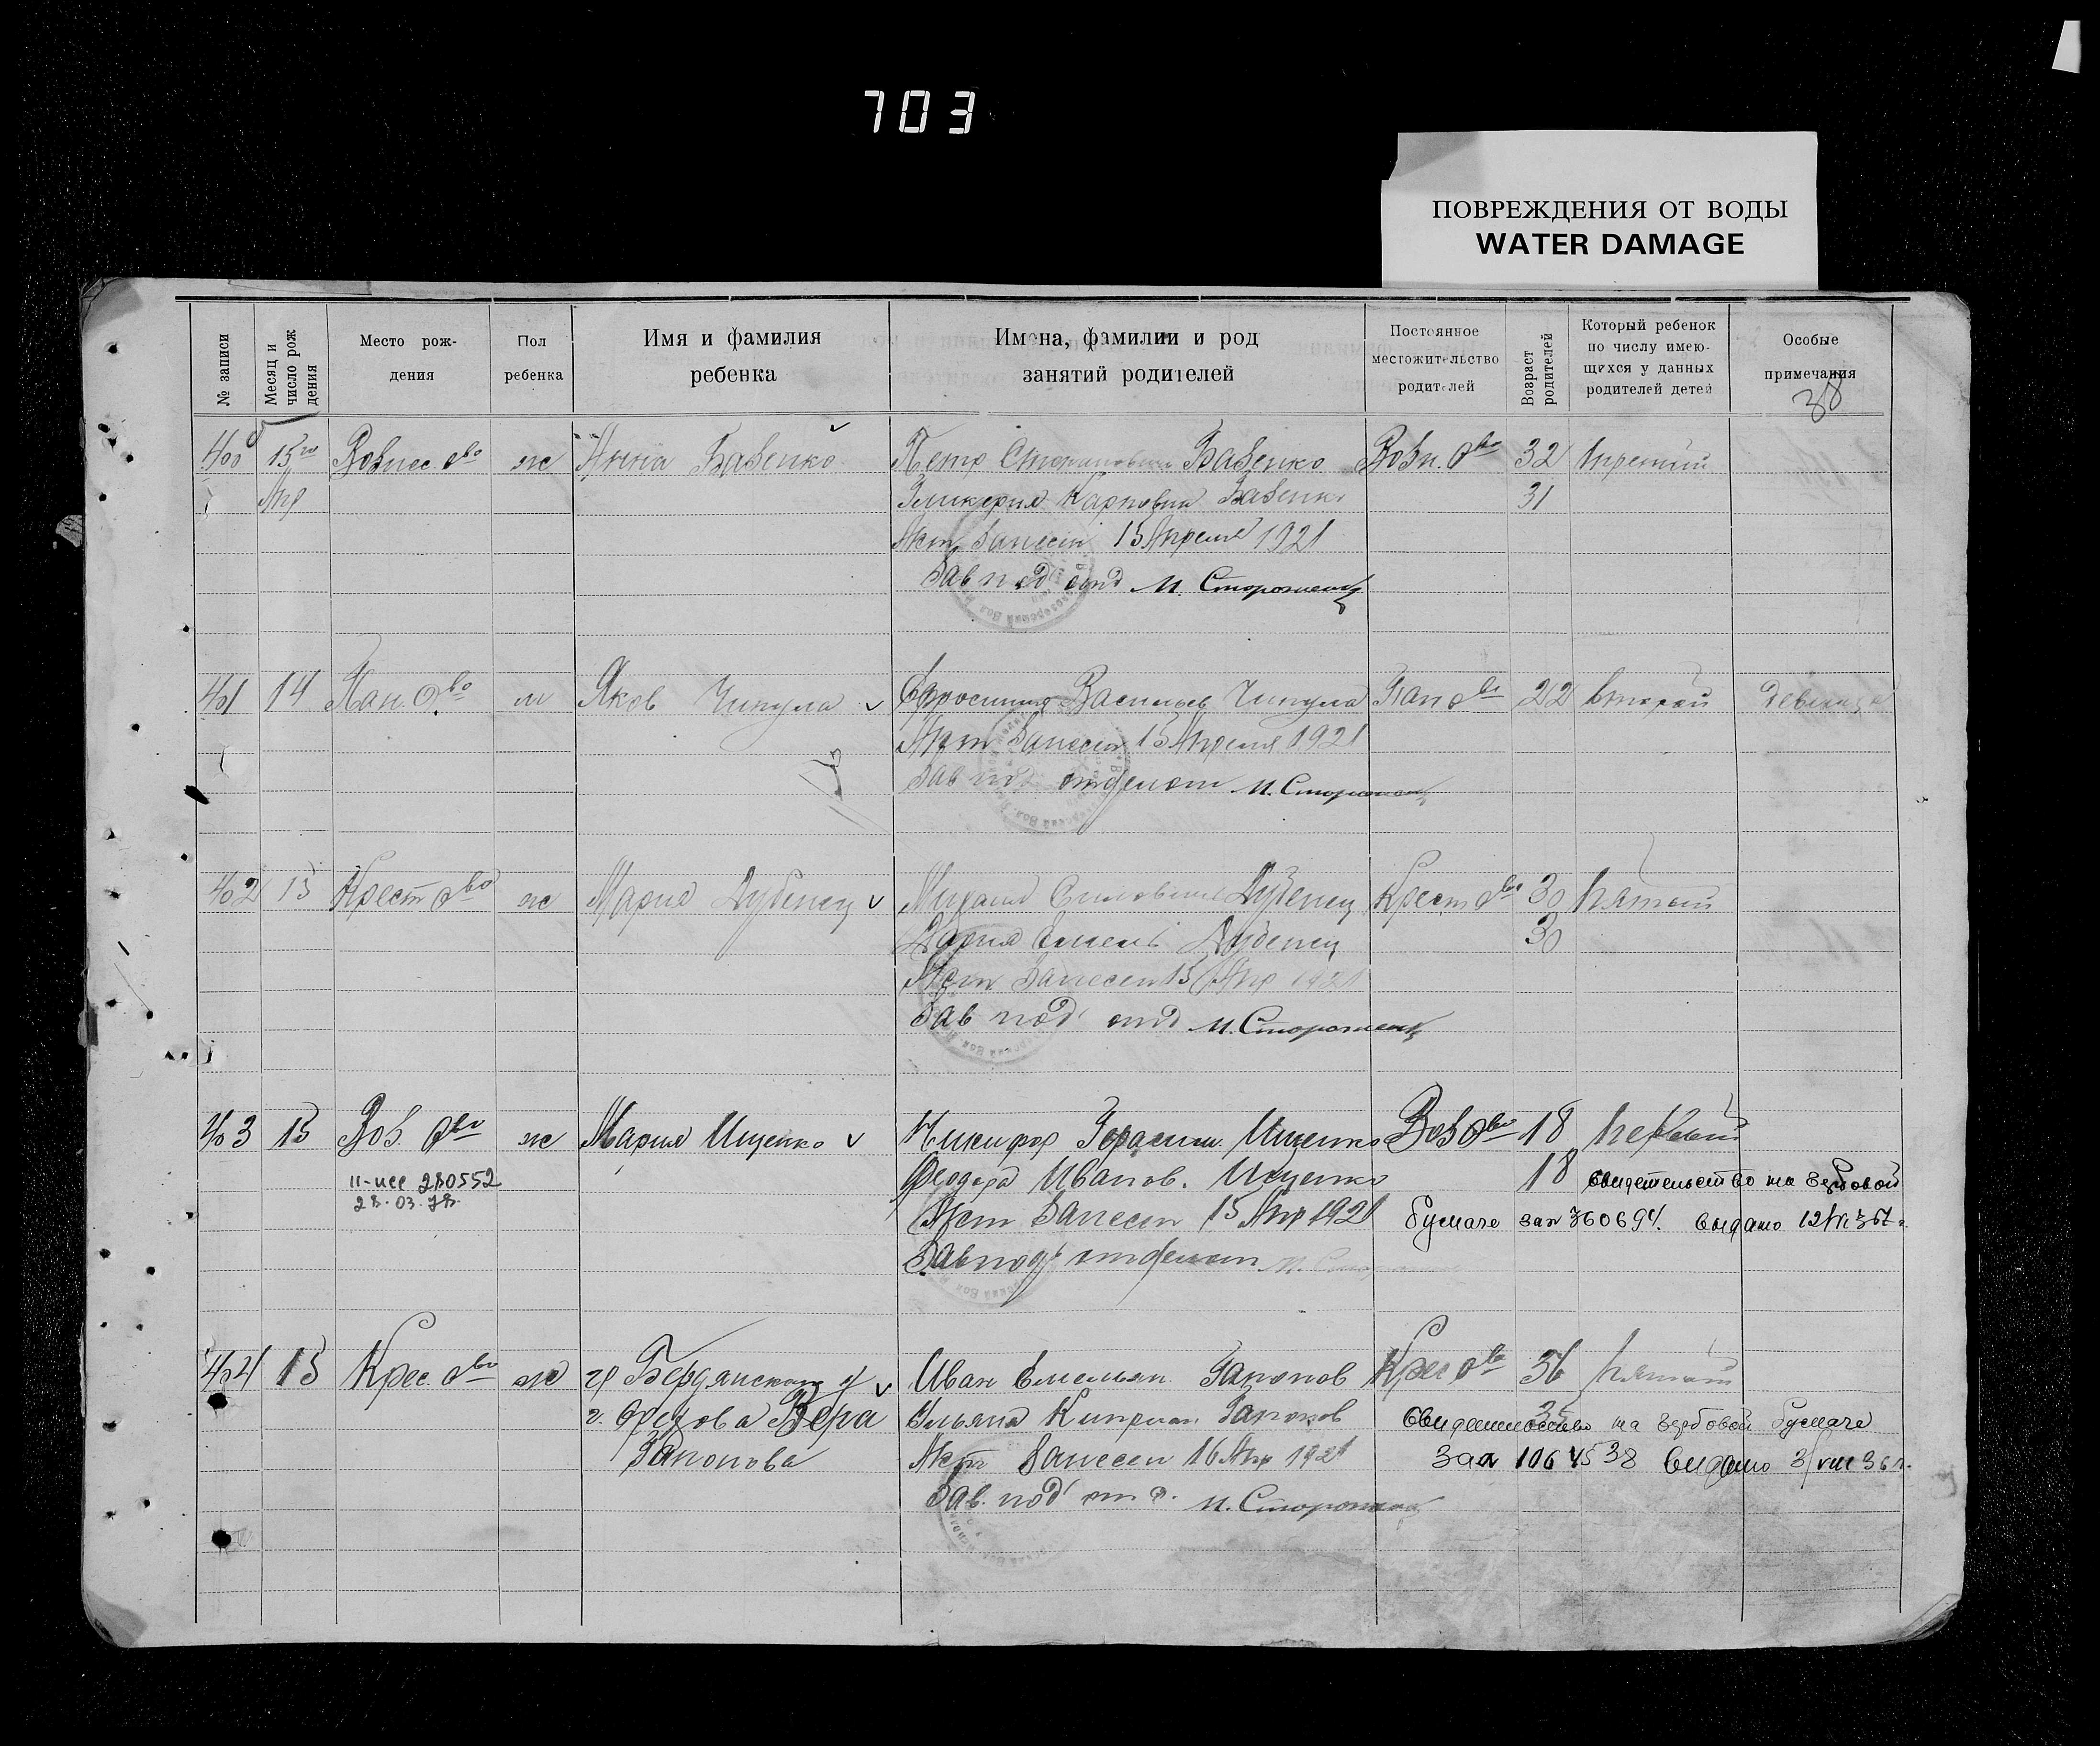 703
ПОВРЕЖДЕНИЯ ОТ ВОДЫ
WATER DAMAGE
№ записи
Месяц и число рождения
Место рождения
Пол ребенка
Имя и фамилия ребенка
Имена, фамилии и род занятий родителей
Постоянное местожительство родителей
Возраст родителей
Который ребенок по числу имеющихся у данных родителей детей
Особые примечания
38
400 15го Вознес. О-во ж Анна Бабенко Петр Бабенко Возн. О-во 32 третий
Апр Гликерия Карповна Бабенко 31
Акт Занесен 15 Апреля 1921
Зав под отд М. Стороженко
401 14 Пан. О-во м Яков Чипула Ефросиния Васильев Чипула Пан О-во 22 второй девица
Акт Занесен 15 Апреля 1921
Зав под отделом М. Стороженко
402 15 Крест О-во ж Мария Дубенец Михаил Дубенец Крест О-во 30 пятый
Дубенец 30
Акт Занесен 15 Апр 1921
Зав под отд М. Стороженко
403 15 Воз. О-во ж Мария Ищенко Никифор Герасим. Ищенко Воз О-во 18 первый
II-ИСС 280552 Феодора Иванов. Ищенко 18 свидетельство на гербовой
28.03.78. Акт Занесен 15 Апр 1921 бумаге зая 360694 выдано
Зав под отделом М. Стороженко
404 15 Крес. О-во ж Бердянском у Иван Емельян. Гапонов Крес О-во 36 пятый
Вера Ульяна Киприан Гапонов свидетельство на гербовой бумаге
Гапонова Акт Занесен 16 Апр 1921 зая 1064538 выдано 3/VIII 36 г.
Зав. под отд. М. Стороженко